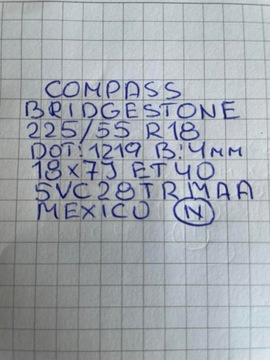 COMPASS
BRIDGESTONE
225/55 R18
DOT:1219 B:4MM
18x7J ET40
5VC28TRMAA
MEXICO IV